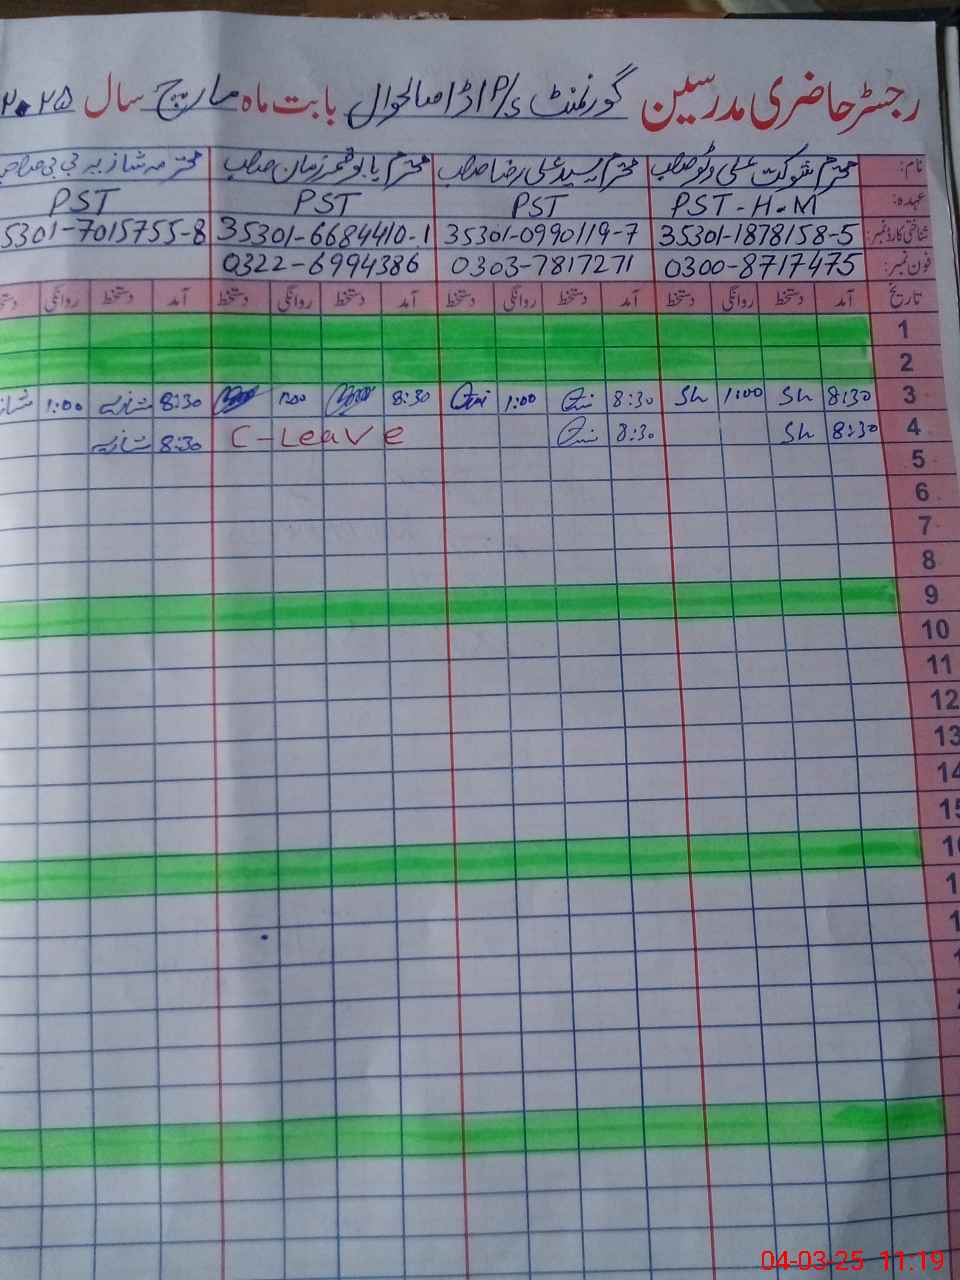 رجسٹر حاضری مدرسین گورنمنٹ P/S اڈا صالحوال بابت ماہ مارچ سال ۲۰۲۵
نام: محترم شوکت علی وٹو صاحب محترم سید علی رضا صاحب محترم بابو قمر زمان صاحب محترمہ شازیہ بی بی
عہدہ: PST-H-M PST PST PST
شناختی کارڈ نمبر: 35301-1878158-5 35301-0990119-7 35301-6684410-1 5301-7015755-8
فون نمبر: 0300-8717475 0303-7817271 0322-6994386
تاریخ آمد دستخط روانگی دستخط آمد دستخط روانگی دستخط آمد دستخط روانگی دستخط آمد دستخط روانگی
1
2
3 8:30 Sh 1:00 Sh 8:30 1:00 8:30 1:00 8:30 شازیہ 1:00
4 8:30 Sh 8:30 C-Leave 8:30 شازیہ
5
6
7
8
9
10
11
12
13
14
04-03-25 11:19